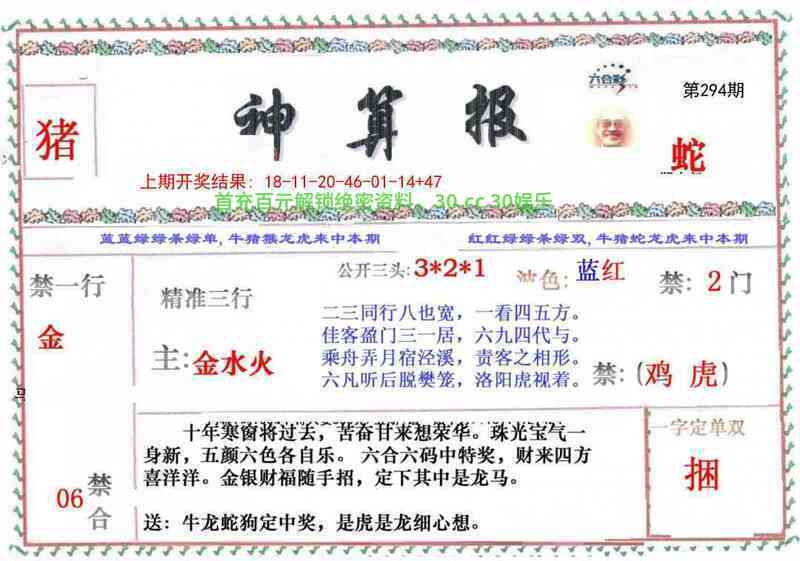 六合彩
第294期
猪
神算报
蛇
上期开奖结果：18-11-20-46-01-14+47
首充百元解锁绝密资料。30.cc 30娱乐
蓝蓝绿绿杀绿单,牛猪猴龙虎来中本期
红红绿绿杀绿双,牛猪蛇龙虎来中本期
禁一行
金
精准三行
主:金水火
公开三头:3*2*1
波色:蓝红
禁:2门
二三同行八也宽，一看四五方。
佳客盈门三一居，六九四代与。
乘舟弄月宿泾溪，责客之相形。
六凡听后脱樊笼，洛阳虎视着。
禁:(鸡 虎)
马
06
禁合
十年寒窗将过去，苦奋甘来想荣华。珠光宝气一
身新，五颜六色各自乐。 六合六码中特奖，财来四方
喜洋洋。金银财福随手招，定下其中是龙马。
送：牛龙蛇狗定中奖，是虎是龙细心想。
一字定单双
捆